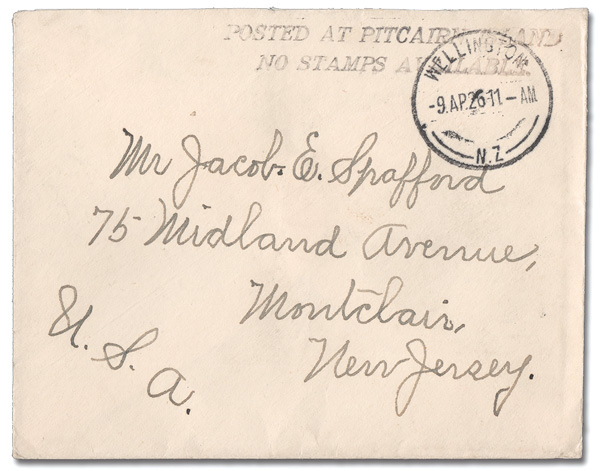 POSTED AT PITCAIRN ISLAND
NO STAMPS AVAILABLE.
WELLINGTON
-9.AP.26-11-AM
N.Z
Mr Jacob. E. Spafford
75 Midland Avenue,
Montclair,
New Jersey.
U. S. A.